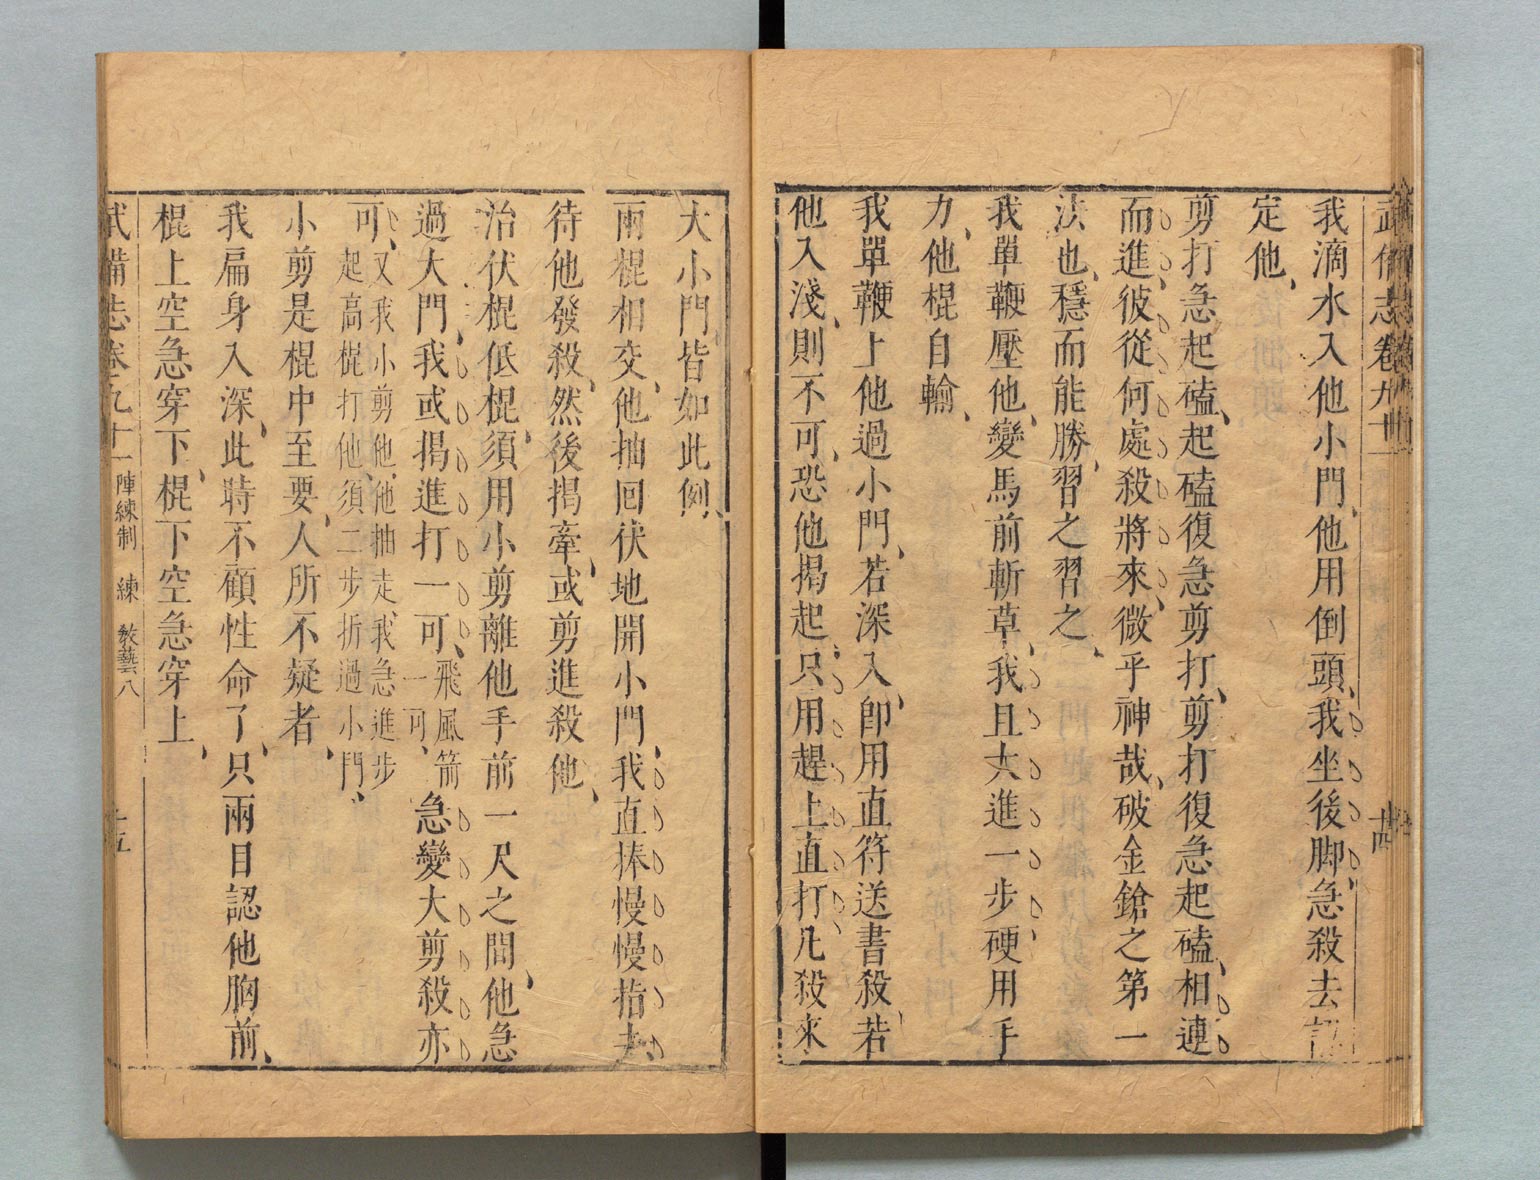 武備志卷九十一
十四
我滴水入他小門他用倒頭我坐後脚急殺去認
定他
剪打急起磕起磕復急剪打剪打復急起磕相連
而進彼從何處殺將來微乎神哉破金鎗之第一
法也穩而能勝習之習之
我單鞭壓他他變馬前斬草我且大進一步硬用手
力他棍自輸
我單鞭上他過小門若深入卽用直符送書殺若
他入淺則不可恐他揭起只用趕上直打凡殺來
大小門皆如此例
兩棍相交他抽囘伏地開小門我直捧慢慢指去
待他發殺然後揭牽或剪進殺他
治伏棍低棍須用小剪離他手前一尺之間他急
過大門我或揭進打一可飛風箭一可急變大剪殺亦
可又我小剪他他抽走我急進步起高棍打他須二步折過小門
小剪是棍中至要人所不疑者
我扁身入深此時不顧性命了只兩目認他胸前
棍上空急穿下棍下空急穿上
武備志卷九十一 陣練制 練 敎藝八
十五